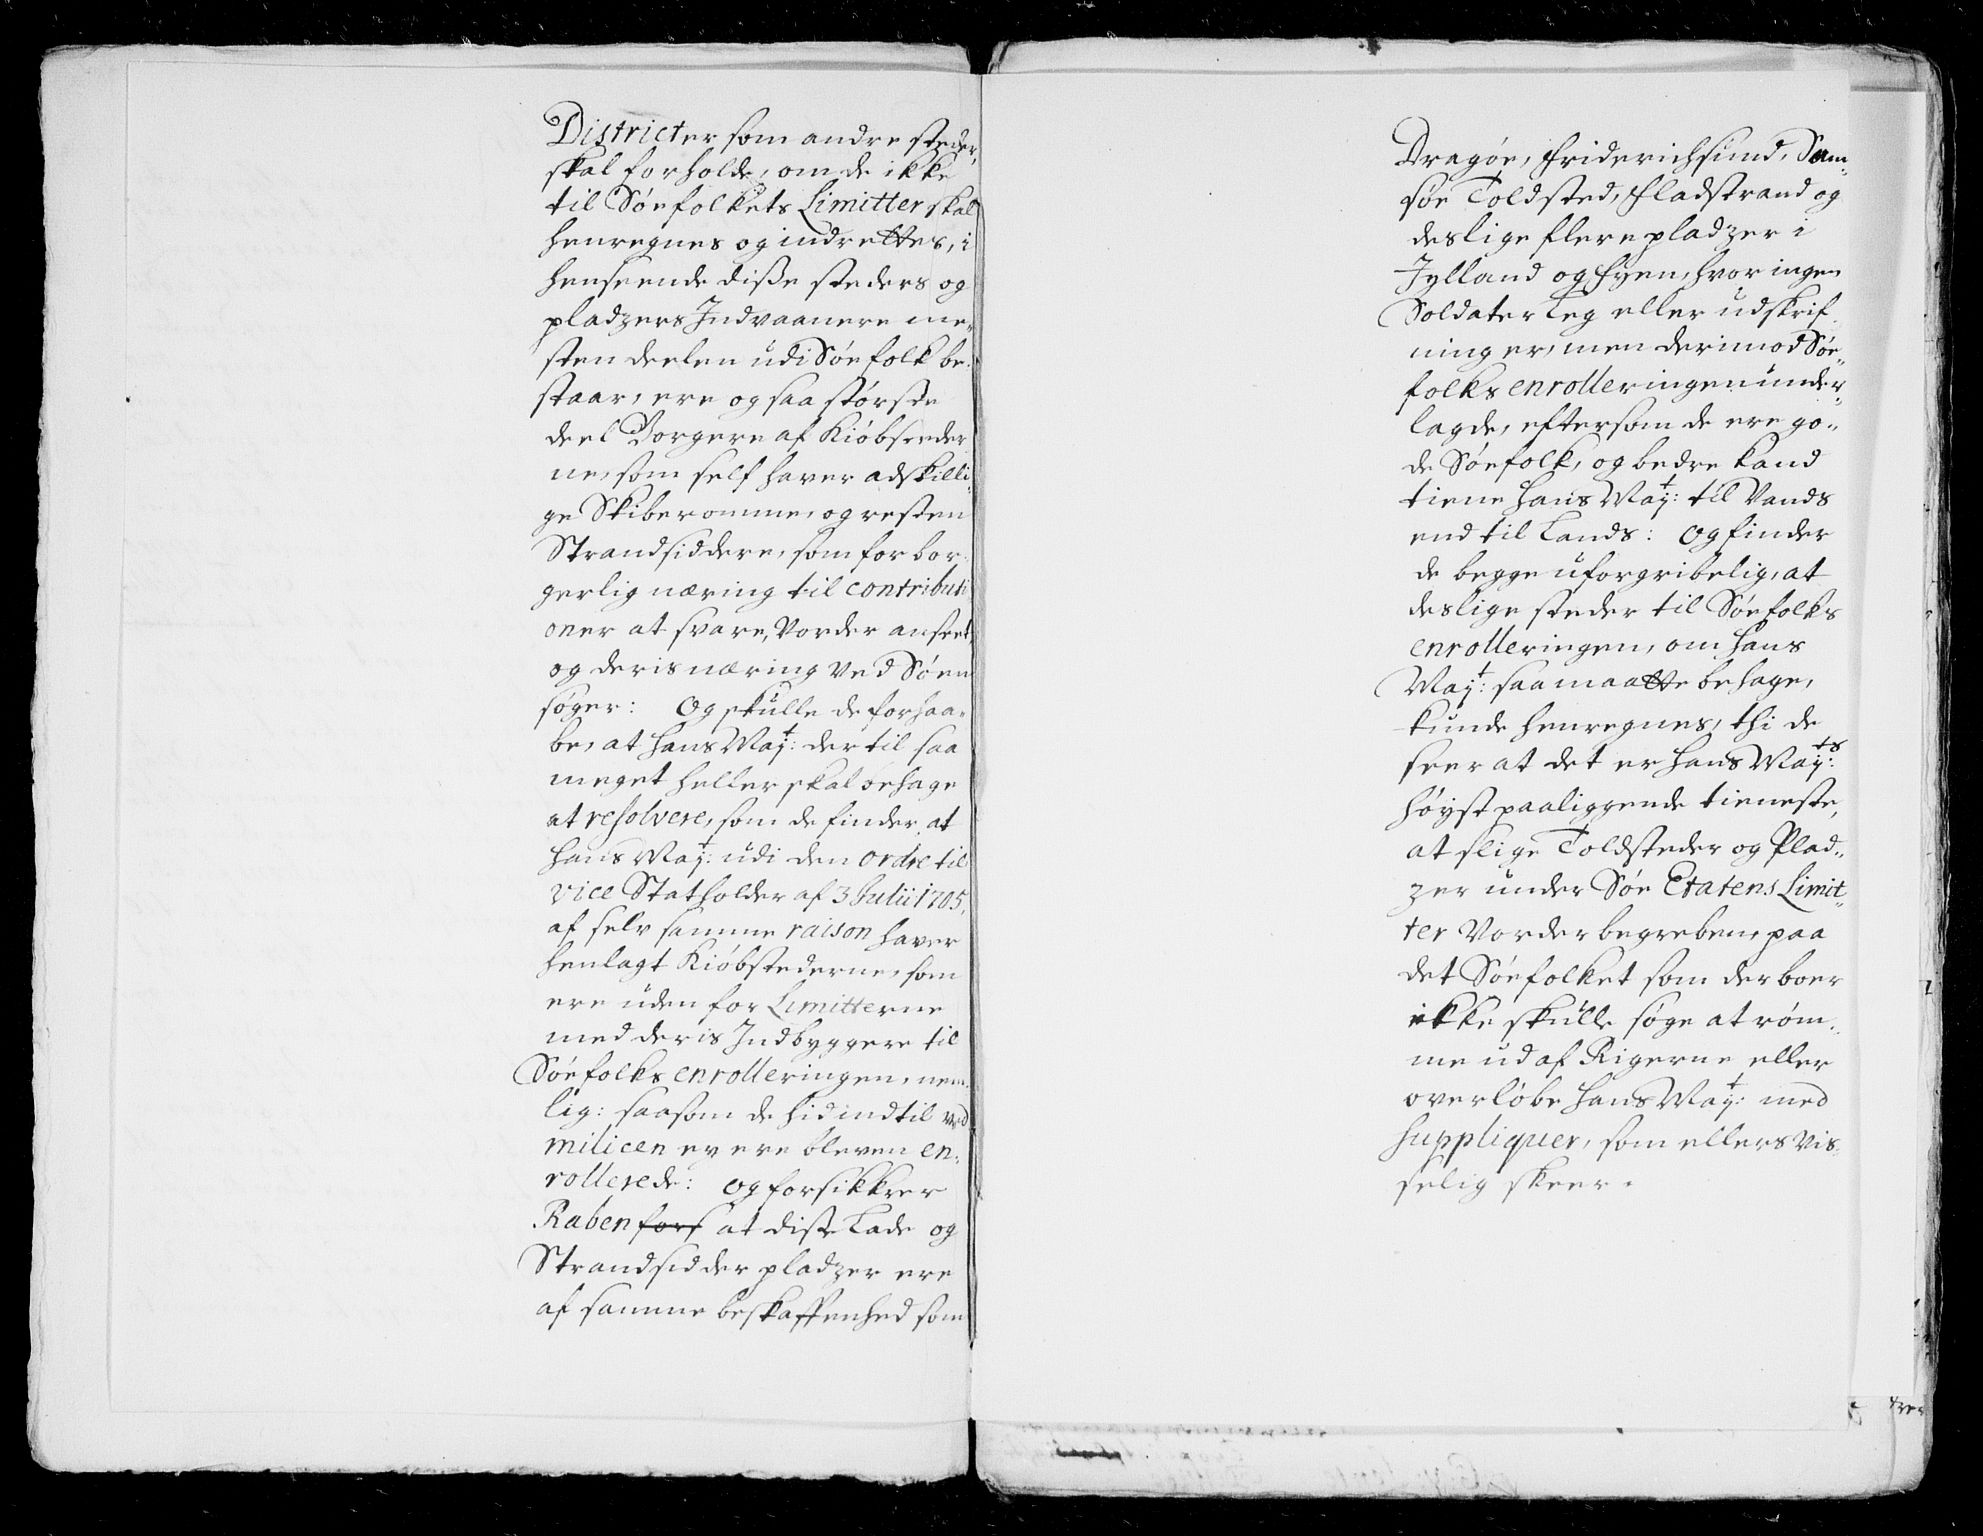 Districter som andre steder,
skal forholde, om de ikke
til Söefolkets Limitter skal
henregnes og indrettes, i
henseende diße steders og
pladzers Indvaanere me„
sten deelen udi Söefolk be„
staar, ere og saa störste
deel Borgere af Kiöbsteder
ne, som self haver adskilli„
ge Skiberomme, og resten
Strandsiddere, som for bor„
gerlig næring til contributi
oner at svare, Vorder anseet,
og deris næring ved Söen
söger: Og skulle de forhaa„
be, at Hans May:t der til saa
meget heller skal behage
at resolvere, som de finder, at
Hans May:t udi den ordre til
vice Statholder af 3 Julii 1705,
af selv samme raison haver
henlagt Kiöbstederne, som
ere uden for Limitterne
med deris Indbyggere til
Söefolks enrolleringen, nem„
lig: saasom de hid indtil ved
milicen ey ere bleven en„
rollerede: og forsikkrer
Raben fors at diße Lade og
Strandsidder pladzer ere
af samme beskaffenhed som
Dragöe, Friderichsund, Sam„
söe Toldsted, Fladstrand og
deslige flere pladzer i
Jylland og Fyen, hvor ingen
Soldater Leg eller udskrif„
ning er, men derimod Söe„
folks enrolleringen under„
lagde, eftersom de ere go„
de Söefolk, og bedre kand
tiene Hans May:t til Vands
end til Lands: Og finder
de begge uforgribelig, at
deslige steder til Söefolks
enrolleringen, om Hans
May:t saa maatte behage,
kunde henregnes, thi de
seer at det er Hans May:ts
höyst paaliggende tieneste,
at slige Toldsteder og Plad„
zer under Söe Etatens Limit„
ter Vorder begreben, paa
det Söefolket som der boer
ikke skulle söge at röm„
me ud af Rigerne eller
overlöbe Hans May:t med
suppliquer, som ellers vis„
selig skeer.